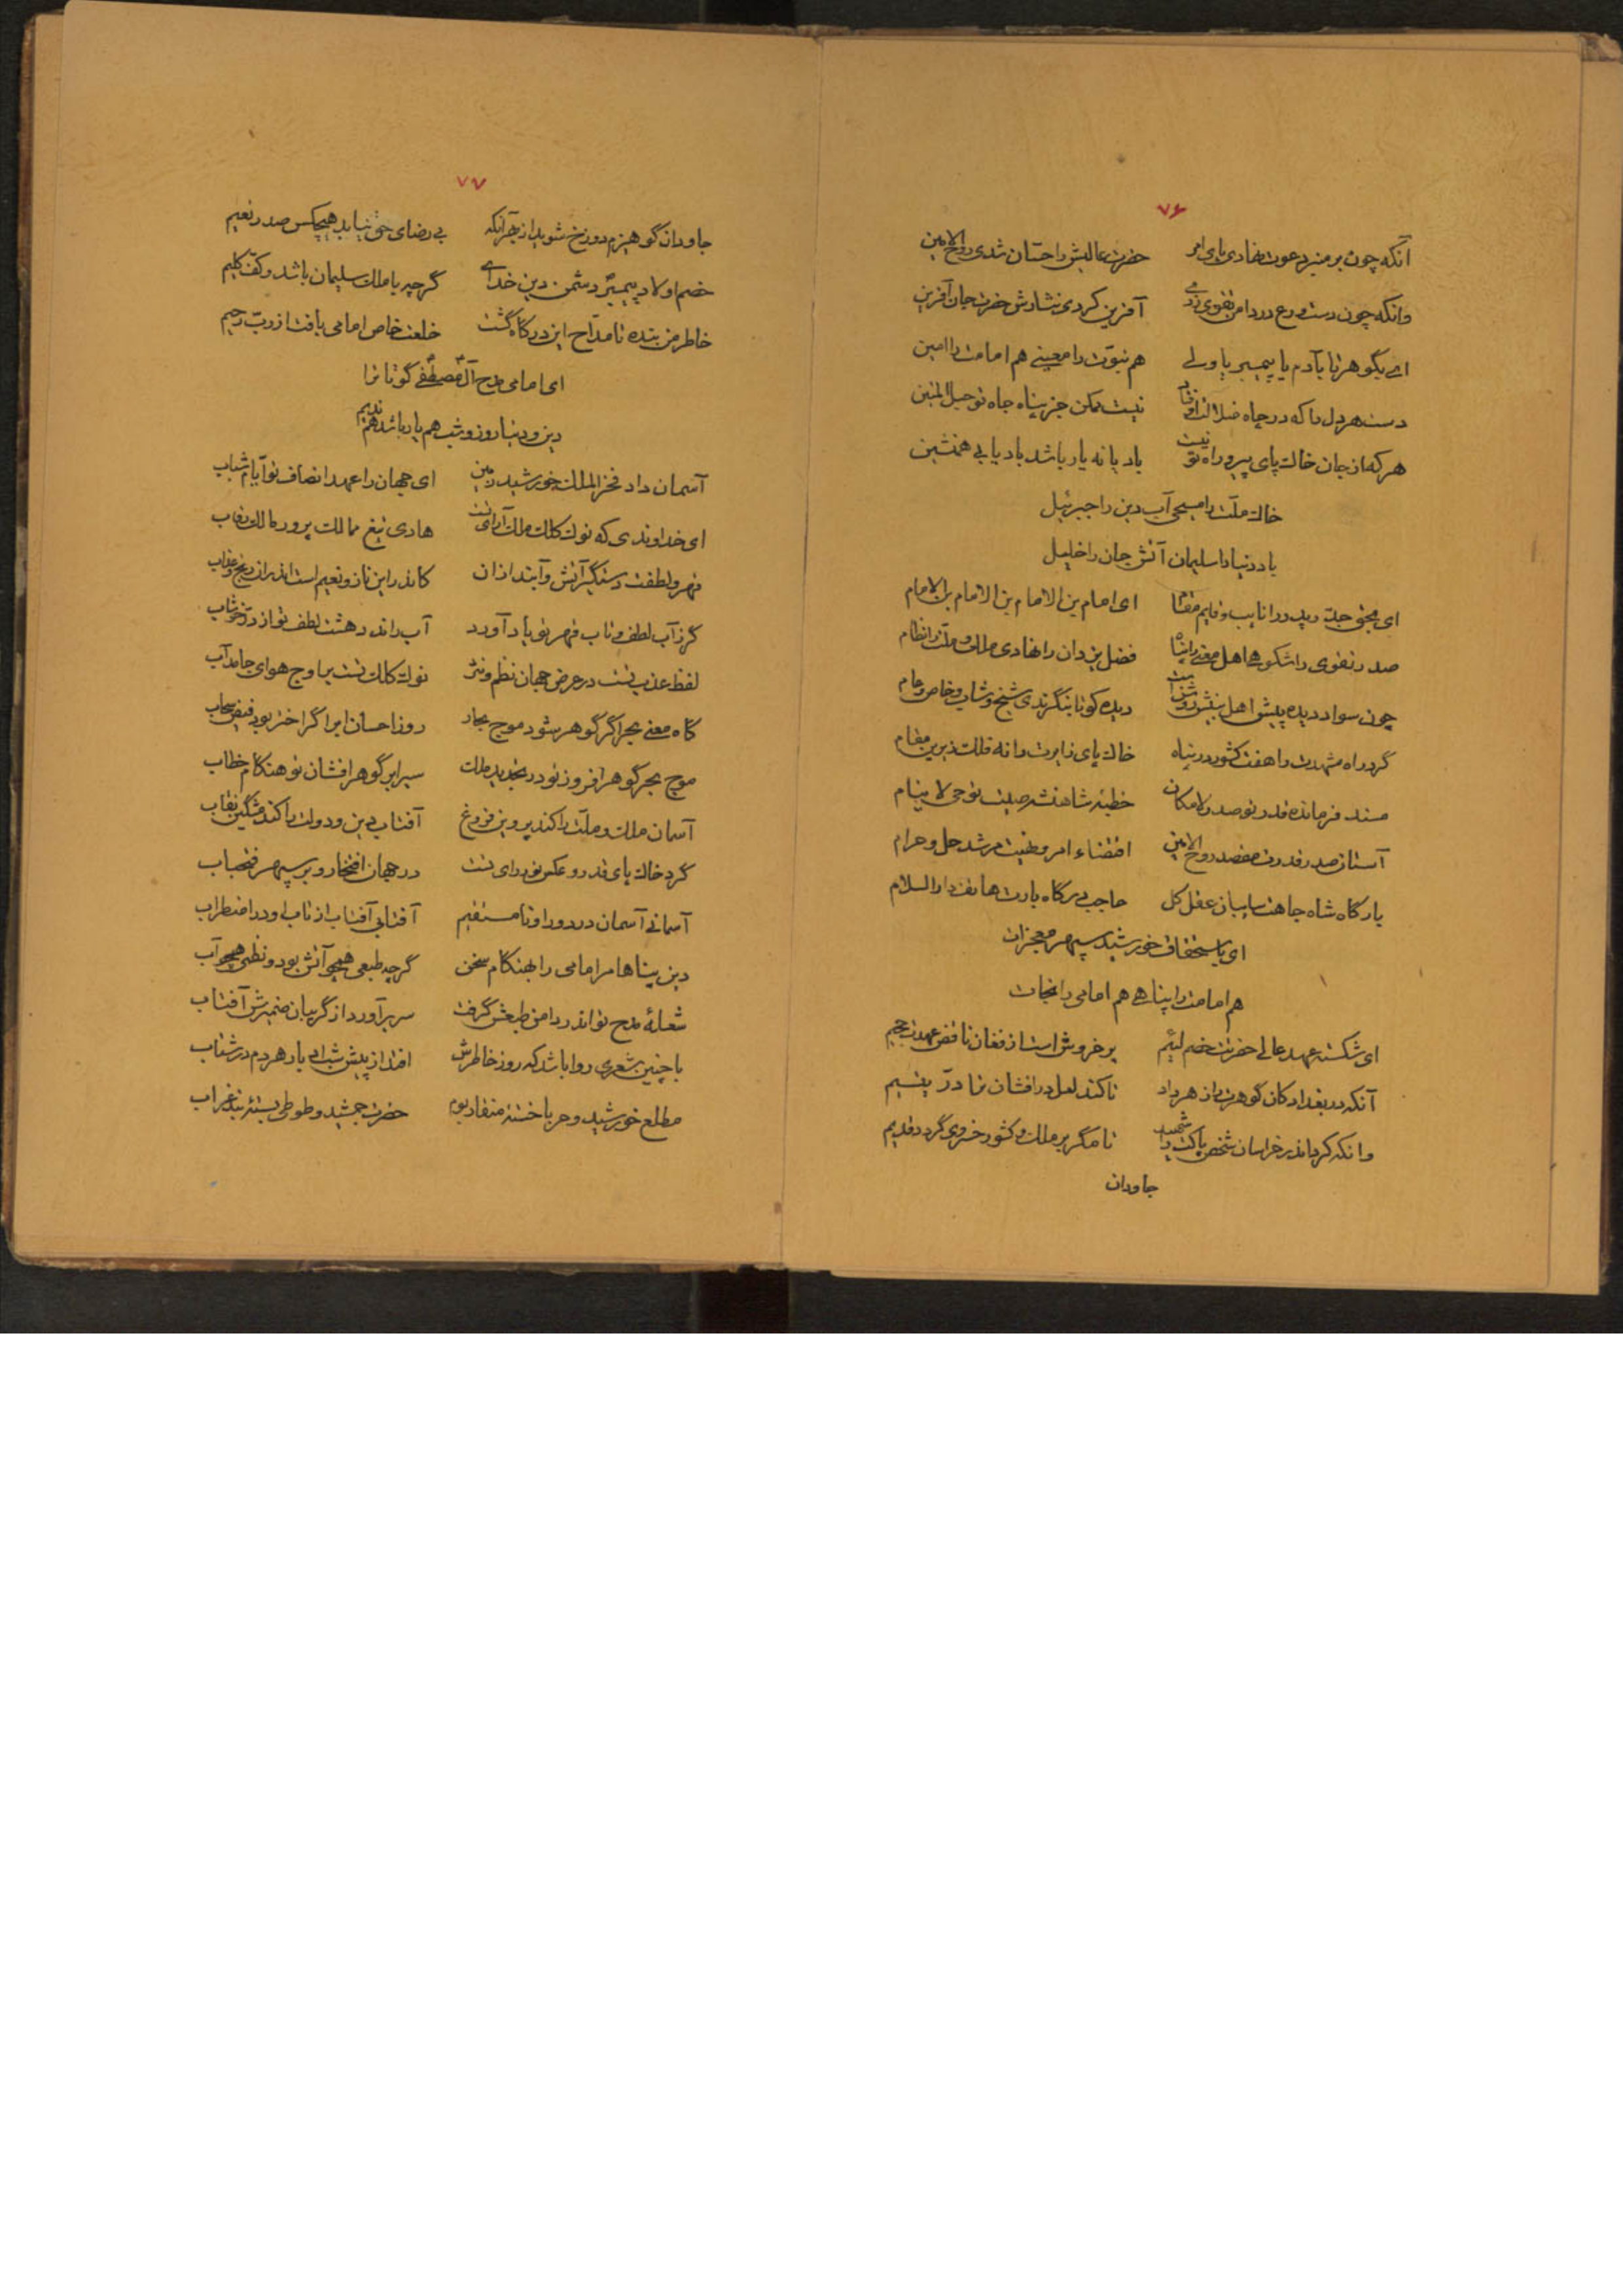 ۷۶
آنکه چون بر منبر دعوت نهادی پای امر حضرت عالیش را حسّان شدی روح الامین
وانکه چون دست ورع در دامن تقوی زدی آفرین کردی نثارش حضرت جان آفرین
ای بگوهر تا بآدم یا پیمبر یا ولی هم نبوّت را معینی هم امامت را امین
دست هر دل را که در چاه ضلالت اوفتاد نیست ممکن جز پناه جاه تو حبل المتین
هر که از جان خاک پای پیرو راه تو نیست باد یا نه یار باشد باد یا بی همنشین
خاک ملّت را مسیحی آب دین را جبرئیل
باد دنیا را سلیمان آتش جان را خلیل
ای بحق جدّ و پدر را نایب و قایم مقام ای امام بن الامام بن الامام بن الامام
صدر تقوی را شکوهی اهل معنی را پناه فضل یزدان را نهادی ملک و ملّت را نظام
چون سواد دیده پیش اهل بینش روشن است دیده کو تا بنگرندی شیخ و شاب و خاص و عام
گرد راه مشهدت را هفت کشور در پناه خاک پای زایرت را نه فلک زیرین مقام
مسند فرمانده قدر تو صدر لامکان خطبه شاهنشه صیت تو حی لا ینام
آستان صدر قدرت مقصد روح الامین اقتضاء امر و نهیت مرشد حل و حرام
بارگاه شاه جاهت سایبان عقل کل حاجب درگاه بارت هاتف دار السلام
ای باستحقاق خورشید سپهر معجزات
هم امامت را پناهی هم امامی را نجات
ای شکسته عهد عالی حضرتت خصم لئیم پر خروش است از فغان ناقض عهدت جحیم
آنکه در بغداد کان گوهرت را زهر داد تا کند لعل درافشان ترا درّ یتیم
وانکه کرد اندر خراسان شخص پاکت را شهید تا مگر بر ملک و کشور خسروی گردد قدیم
جاودان
۷۷
جاودان گو هیزم دوزخ شوید از بهر آنکه بی رضای حق نیابد هیچکس صدر نعیم
خصم اولاد پیمبر دشمن دین خدای گرچه با ملک سلیمان باشد و کف کلیم
خاطر من بنده تا مدّاح این درگاه گشت خلعت خاص امامی یافت از ربّ رحیم
ای امامی مدح آل مصطفی گو تا ترا
دین و دنیا روز و شب هم یار باشد هم ندیم
آسمان داد فخر الملک خورشید زمین ای جهان را عهد انصاف تو ایّام شباب
ای خداوندی که نوک کلک ملک آرای تست هادی تیغ ممالک پرور مالک رقاب
قهر و لطفت دستگیر آتش و آبند ازان کاندر این ناز و نعیم است اندران رنج و عذاب
گر ز آب لطف و تاب قهر تو یاد آورد آب راند دهشت لطف تو از درّ خوشاب
لفظ عذب تست در عرض جهان نظم و نثر نوک کلک تست بر اوج هوای جامد آب
گاه معنی بحر اگر گوهر شود موج بحار روز احسان ابر اگر اختر بود فیض سحاب
موج بحر گوهر افروز تو در تجدید ملک سیر ابر گوهر افشان تو هنگام خطاب
آسمان ملک و ملّت را کند پروین فروغ آفتاب دین و دولت را کند مشگین نقاب
گرد خاک پای قدر و عکس نور رای تست در جهان افتخار و بر سپهر فتحیاب
آسمانی آسمان در دور او نامستقیم آفتابی آفتاب از تاب او در اضطراب
دین پناها مر امامی را بهنگام سخن گرچه طبعی همچو آتش بود و نظمی همچو آب
شعلهٔ مدح تو اندر دامن طبعش گرفت سر برآورد از گریبان ضمیرش آفتاب
با چنین شعری روا باشد که روز خاطرش افتد از پیش شب ادبار هر دم در شتاب
مطلع خورشید و حربا خسته منقار بوم حضرت جمشید و طوطی بستهٔ بند غراب